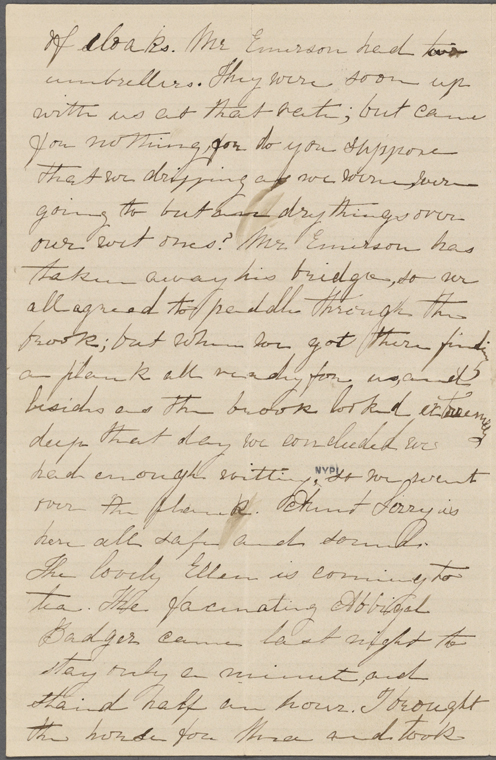 of cloaks. Mr Emerson had two
umbrellers. They were soon up
with us at that rate; but came
for nothing, for do you suppose
that we dripping as we were, were
going to put on dry things over
our wet ones? Mr Emerson has
taken away his bridge, so we
all agreed to peddle through the
brook; but when we got there findi
a plank all ready for us, and
besides as the brook looked extremely
deep that day we concluded we
had enough wetting, so we went
over the plank. Aunt is
here all safe and sound.
The lovely Ellen is coming to
tea. The facinating Abbigal
Badger came last night to
stay only a minute, and
staid half an hour. I brought
the horse for thea and took
NYPL